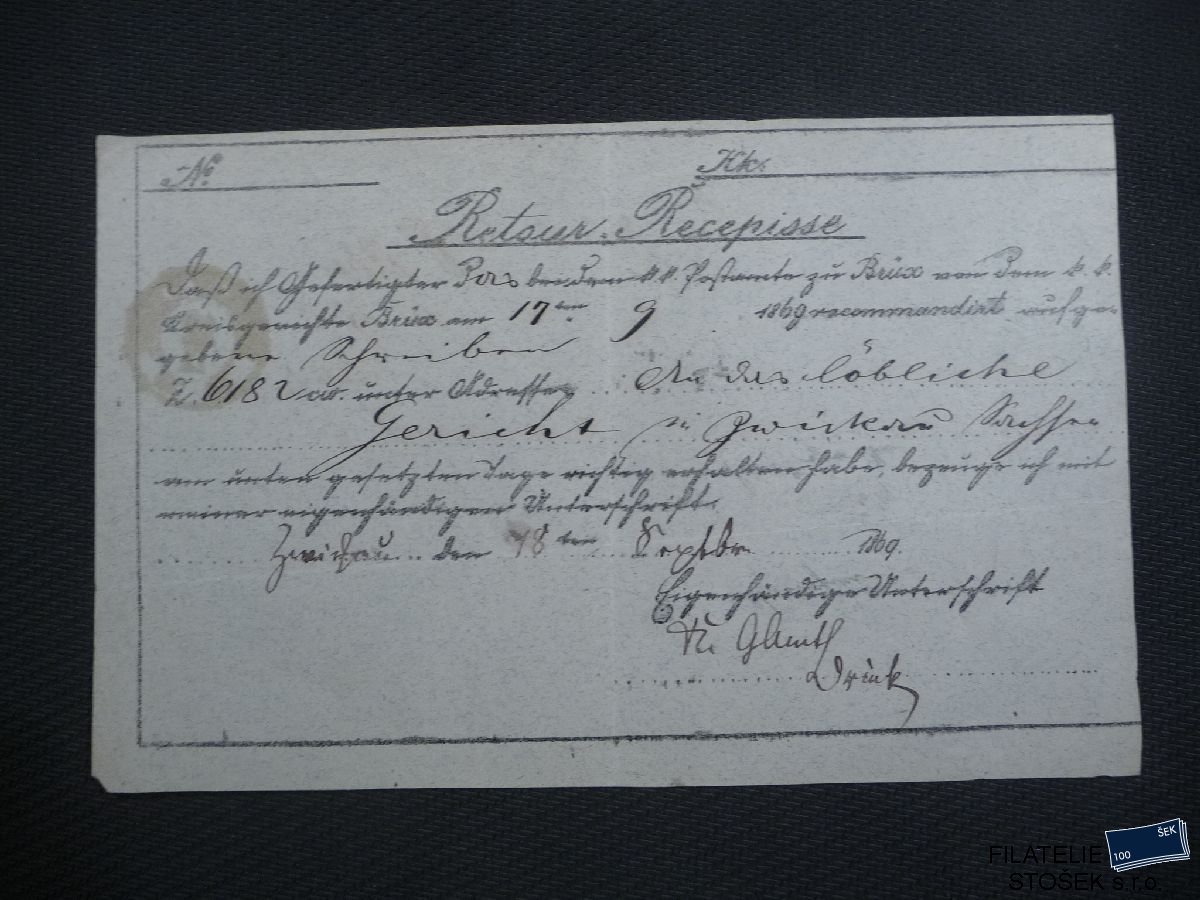 No. Kk.
Retour-Recepisse
Daß ich Gefertigter das bei dem k. k. Postamte zu Brüx von dem k. k.
Kreisgerichte Brüx am 17ten 9 1869 recommandirt aufge-
gebene Schreiben
Z. 6182 unter Adresse An das löbliche
Gericht in Zwickau Sachsen
am unten gesetzten Tage richtig erhalten habe, bezeuge ich mit
meiner eigenhändigen Unterschrift.
Zwickau den 18ten Septbr. 1869.
Eigenhändige Unterschrift
100 ŠEK
FILATELIE
STOŠEK s.r.o.